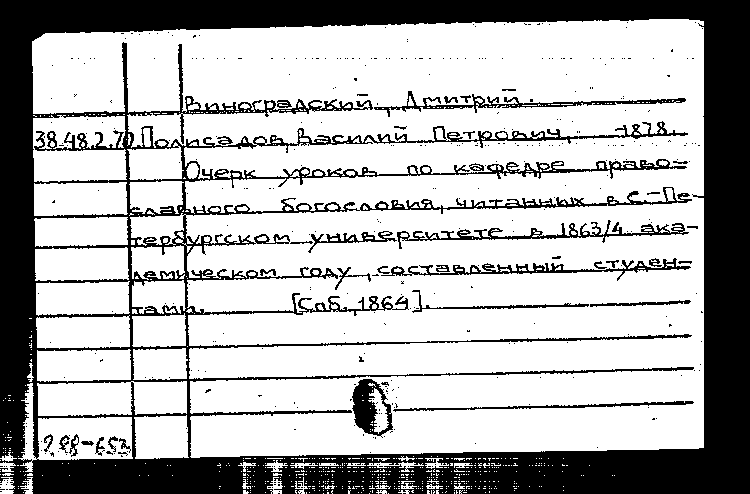 Виноградский, Дмитрий.
38.48.2.70 Полисадов, Василий Петрович, -1878.
Очерк уроков по кафедре право=
славного богословия, читанных в С.-Пе-
тербургском университете в 1863/4 ака-
демическом году, составленный студен=
тами. [Спб., 1864].
298-653